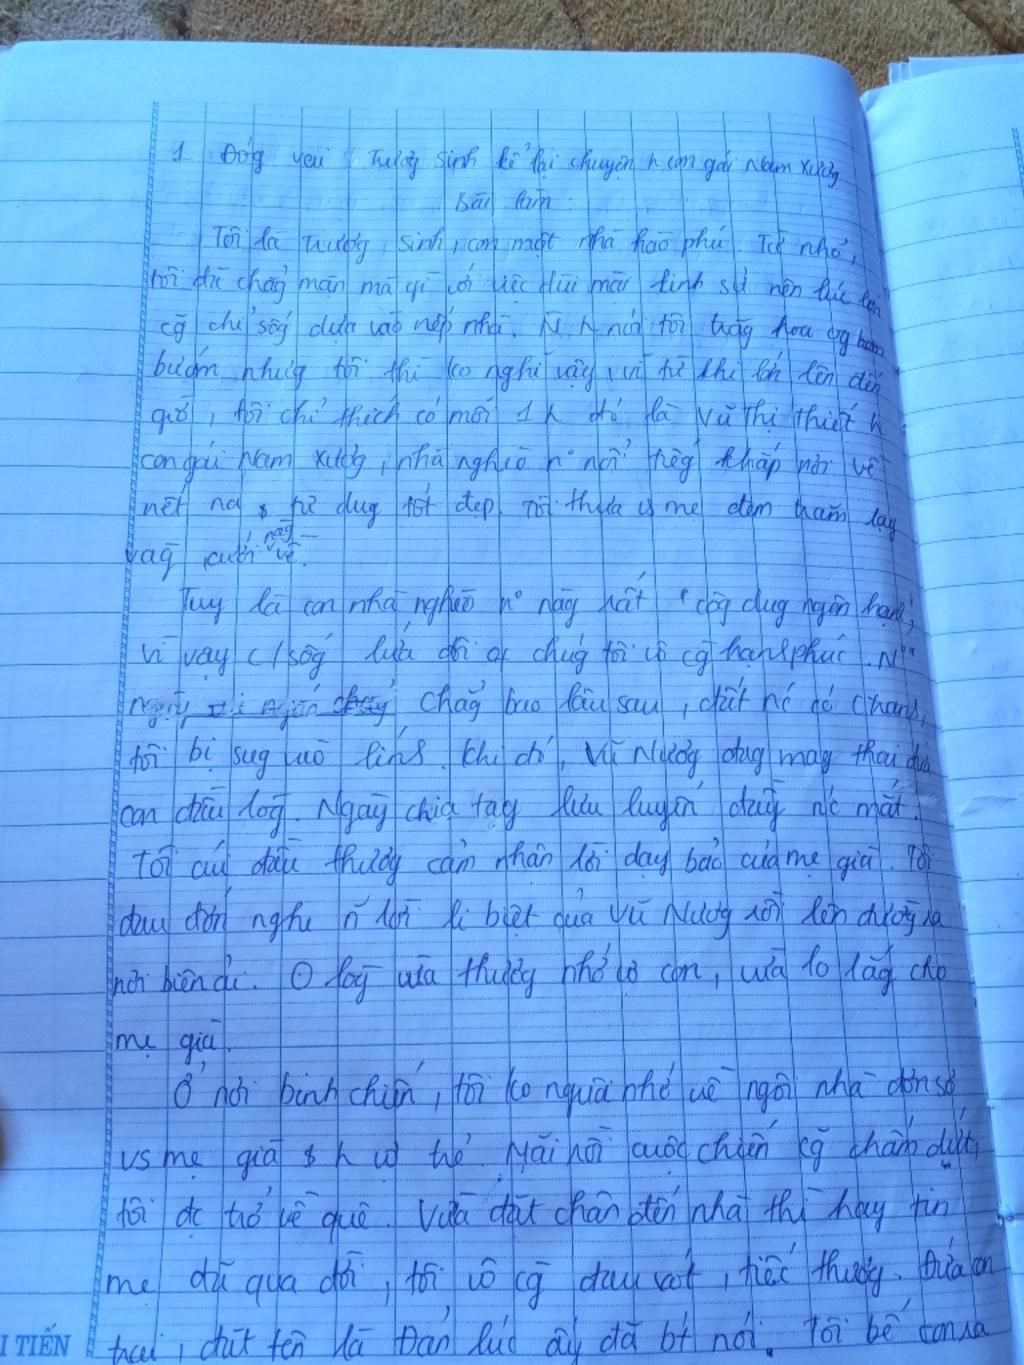 1 Đóg vai Trươg Sinh kể lại chuyện h con gái Nam Xươg
Bài làm
Tôi là Trươg Sinh, con một nhà hào phú. Từ nhỏ,
tôi đã chẳg mặn mà gì với việc dùi mài kinh sử nên lúc lớn
cg chỉ sốg dựa vào nếp nhà. N h nói tôi trăg hoa og bướm
bướm nhưg tôi thì ko nghĩ vậy vì từ khi lớn lên đến
giờ, tôi chỉ thích có mỗi 1 h đó là Vũ Thị Thiết h
con gái Nam Xươg, nhà nghèo nº nổi tiếg khắp nơi về
nết na & tư dug tốt đẹp. Tôi thưa vs mẹ đem trăm lạg
vàg cưới nàg về.
Tuy là con nhà nghèo nº nàg rất "côg dug ngôn hạnh",
vì vậy c/sốg lứa đôi of chúg tôi vô cg hạnh phúc. Nº
chẳg bao lâu sau, đất nc có ch tranh,
tôi bị sug vào lính. Khi đó, Vũ Nươg đag mag thai đứa
con đầu lòg. Ngày chia tay lưu luyến đầy nc mắt.
Tôi cúi đầu thươg cảm nhận lời dạy bảo của mẹ già. Tôi
đau đớn nghe n lời li biệt của Vũ Nươg rồi lên đườg ra
nơi biên ải. O lòg vừa thươg nhớ vợ con, vừa lo lắg cho
mẹ già.
Ở nơi binh chiến, tôi ko nguôi nhớ về ngôi nhà đơn sơ
vs mẹ già & h vợ trẻ. Mãi rồi cuộc chiến cg chấm dứt,
tôi đc trở về quê. Vừa đặt chân đến nhà thì hay tin
mẹ đã qua đời, tôi vô cg đau xót, tiếc thươg. Đứa con
trai, đặt tên là Đản lúc ấy đã bt nói. Tôi bế con ra
I TIẾN